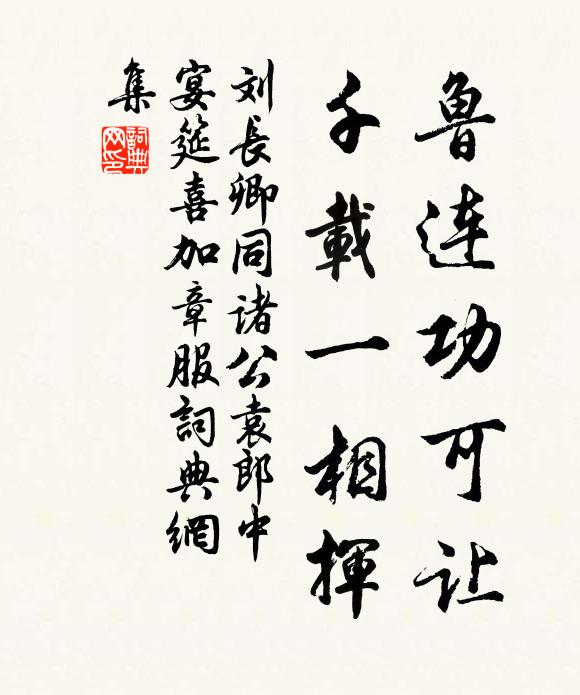 鲁连功可让
千載一相揮
刘長卿同诸公袁郎中
宴筵喜加章服詞典網
集
詞典网印